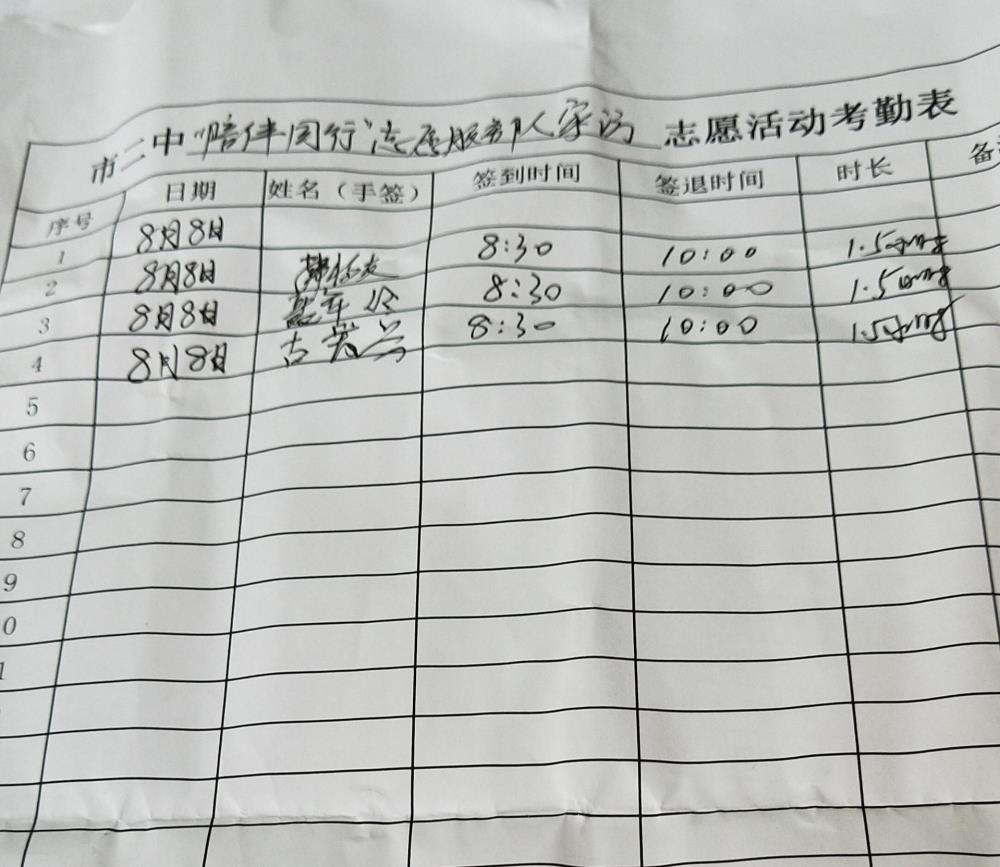 市二中"陪伴同行"志愿服务队家访 志愿活动考勤表
序号 日期 姓名（手签） 签到时间 签退时间 时长 备
1 8月8日 8:30 10:00 1.5
2 8月8日 8:30 10:00 1.5
3 8月8日 8:30 10:00 1.5
4 8月8日 古
5
6
7
8
9
0
1